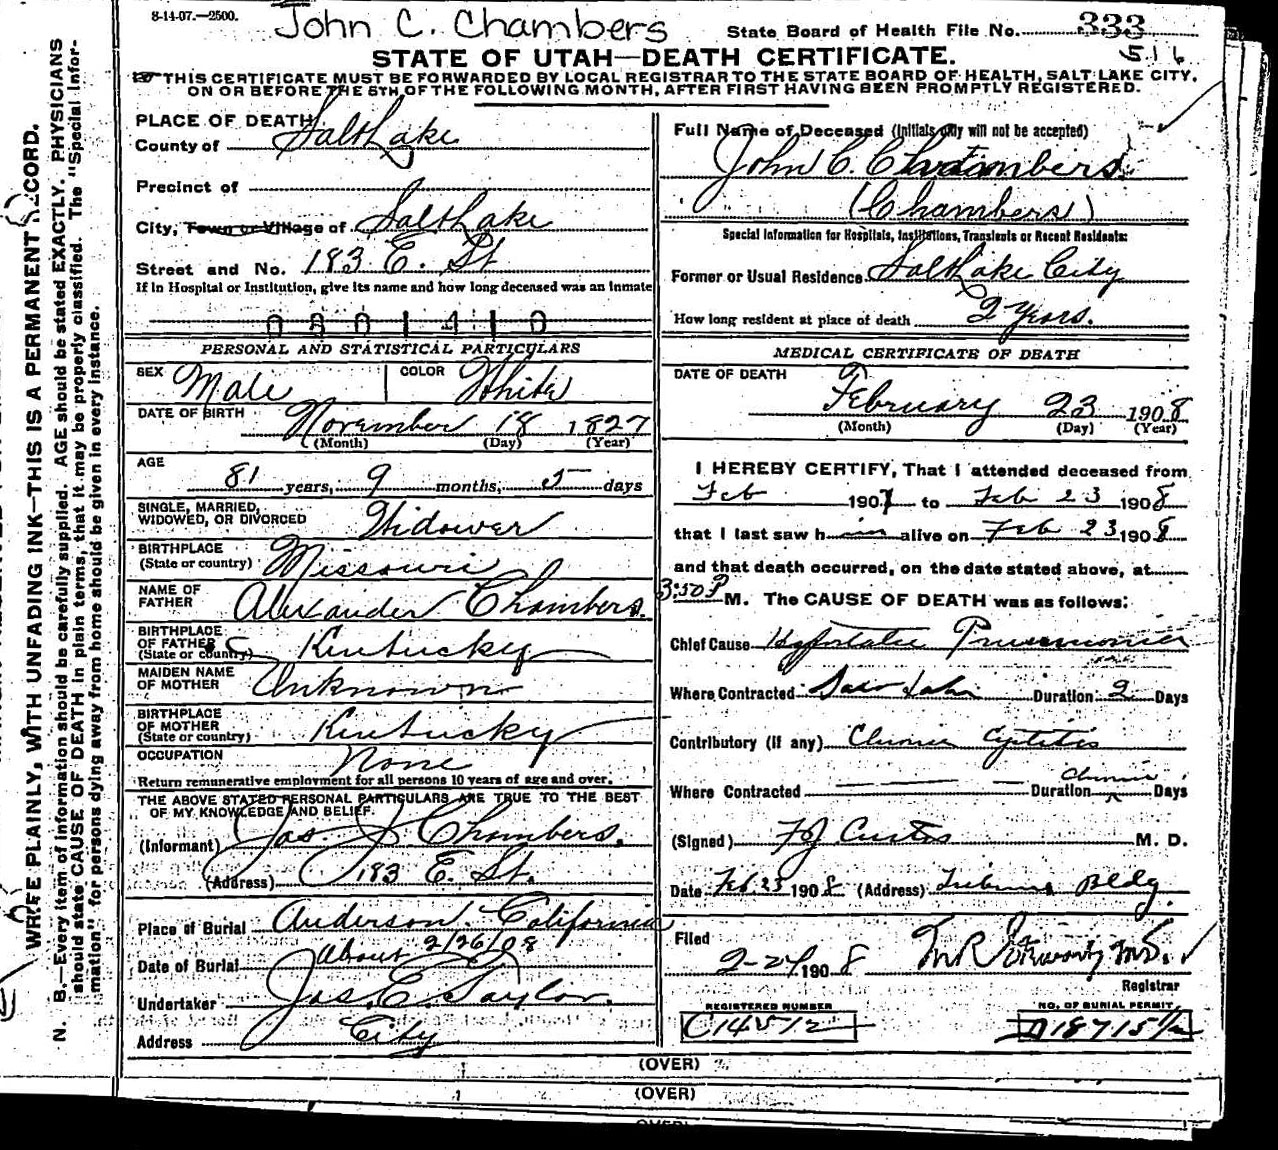 8-14-07.—2500.
John C. Chambers
State Board of Health File No. 333
516
STATE OF UTAH—DEATH CERTIFICATE.
THIS CERTIFICATE MUST BE FORWARDED BY LOCAL REGISTRAR TO THE STATE BOARD OF HEALTH, SALT LAKE CITY,
ON OR BEFORE THE 5TH OF THE FOLLOWING MONTH, AFTER FIRST HAVING BEEN PROMPTLY REGISTERED.
WRITE PLAINLY, WITH UNFADING INK—THIS IS A PERMANENT RECORD.
N. B.—Every item of information should be carefully supplied. AGE should be stated EXACTLY. PHYSICIANS
should state CAUSE OF DEATH in plain terms, that it may be properly classified. The "Special Infor-
mation" for persons dying away from home should be given in every instance.
PLACE OF DEATH
County of Salt Lake
Precinct of
City, Town or Village of Salt Lake
Street and No. 183 E. St
If in Hospital or Institution, give its name and how long deceased was an inmate
0801410
PERSONAL AND STATISTICAL PARTICULARS
SEX Male COLOR White
DATE OF BIRTH November 18 1827
(Month) (Day) (Year)
AGE
81 years, 9 months, 5 days
SINGLE, MARRIED,
WIDOWED, OR DIVORCED Widower
BIRTHPLACE
(State or country) Missouri
NAME OF
FATHER Alexander Chambers.
BIRTHPLACE
OF FATHER
(State or country) Kentucky
MAIDEN NAME
OF MOTHER Unknown
BIRTHPLACE
OF MOTHER
(State or country) Kentucky
OCCUPATION None
Return remunerative employment for all persons 10 years of age and over.
THE ABOVE STATED PERSONAL PARTICULARS ARE TRUE TO THE BEST
OF MY KNOWLEDGE AND BELIEF
(Informant) Jas. J. Chambers.
(Address) 183 E. St.
Place of Burial Anderson. California
Date of Burial About 2/26/08
Undertaker Jas. C. Taylor.
Address City
Full Name of Deceased (Initials only will not be accepted)
John C. Chambers.
(Chambers)
Special Information for Hospitals, Institutions, Transients or Recent Residents:
Former or Usual Residence Salt Lake City
How long resident at place of death 2 Years.
MEDICAL CERTIFICATE OF DEATH
DATE OF DEATH
February 23 1908
(Month) (Day) (Year)
I HEREBY CERTIFY, That I attended deceased from
Feb 1907 to Feb 23 1908
that I last saw him alive on Feb 23 1908
and that death occurred, on the date stated above, at
3:50 P M. The CAUSE OF DEATH was as follows:
Chief Cause Hypostatic Pneumonia
Where Contracted Salt Lake Duration 2 Days
Contributory (if any) Chronic Cystitis
Where Contracted Duration Chronic Days
(Signed) F J Curtis M. D.
Date Feb 23 1908 (Address) Tribune Bldg
Filed
2-24 1908
Registrar
REGISTERED NUMBER
C14512
NO. OF BURIAL PERMIT
(OVER)
(OVER)
(OVER)